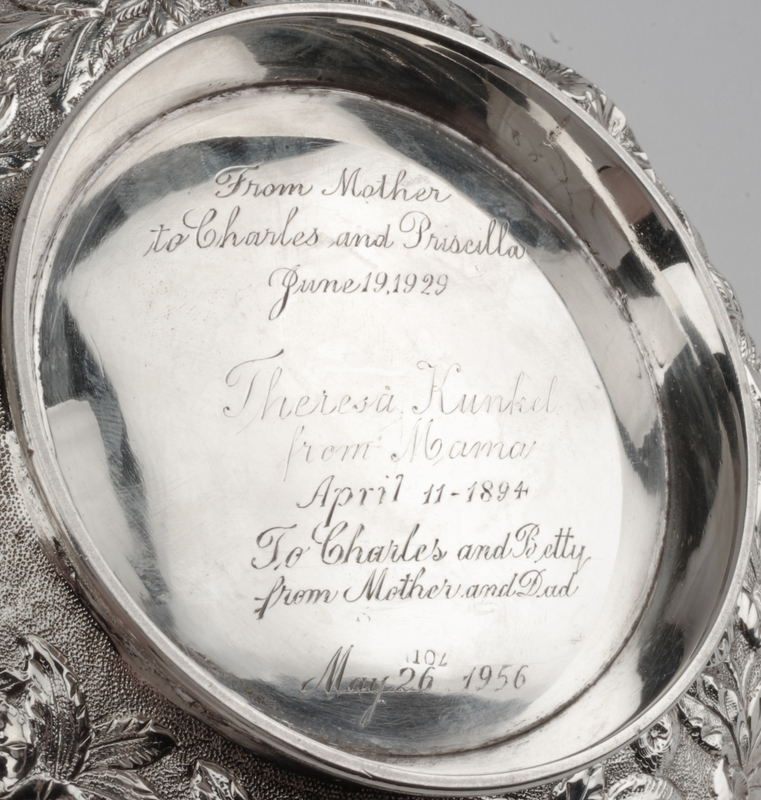 From Mother
to Charles and Priscilla
June 19, 1929
Theresa Kunkel
from Mama
April 11-1894
To Charles and Betty
from Mother and Dad
107
May 26 1956